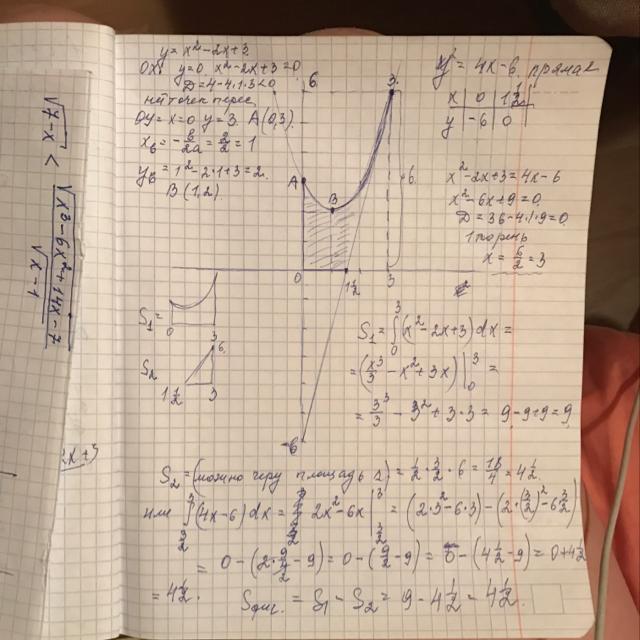 y = x² - 2x + 3.
OX: y=0. x² - 2x + 3 = 0.
D = 4 - 4·1·3 < 0
нет точек перес.
OY = x=0 y=3. A(0,3).
x_в = -b/2a = 2/2 = 1
y_в = 1² - 2·1 + 3 = 2.
B(1,2).
6
3
A
B
6
0
1½
3
-6
y = 4x - 6. прямая
x | 0 | 1½
y | -6 | 0
x² - 2x + 3 = 4x - 6
x² - 6x + 9 = 0.
D = 36 - 4·1·9 = 0.
1 корень
x = 6/2 = 3
S₁ =
0
3
S₂
6
1½
3
S₁ = ∫₀³ (x² - 2x + 3) dx =
= (x³/3 - x² + 3x) |₀³ =
= 3³/3 - 3² + 3·3 = 9 - 9 + 9 = 9
S₂ = (можно через площадь Δ) = ½ · 3/2 · 6 = 18/4 = 4½.
или ∫ (4x - 6) dx = 2x² - 6x | = (2·3² - 6·3) - (2·(3/2)² - 6·3/2)
= 0 - (2·9/4 - 9) = 0 - (9/2 - 9) = 0 - (4½ - 9) = 0 + 4½
= 4½.
S фиг. = S₁ - S₂ = 9 - 4½ = 4½.
√7-x < √x³ - 6x² + 14x - 7
√x - 1
2x + 3